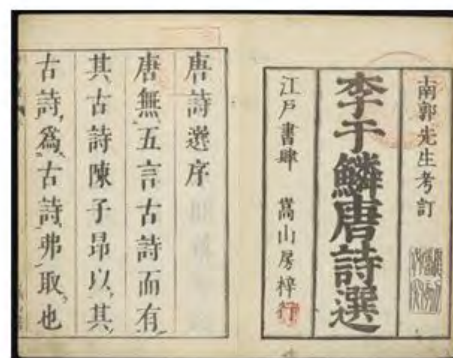 南郭先生考訂
李于鱗唐詩選
江戶書肆 嵩山房梓行
唐詩選序
唐無五言古詩而有
其古詩陳子昂以其
古詩爲古詩弗取也